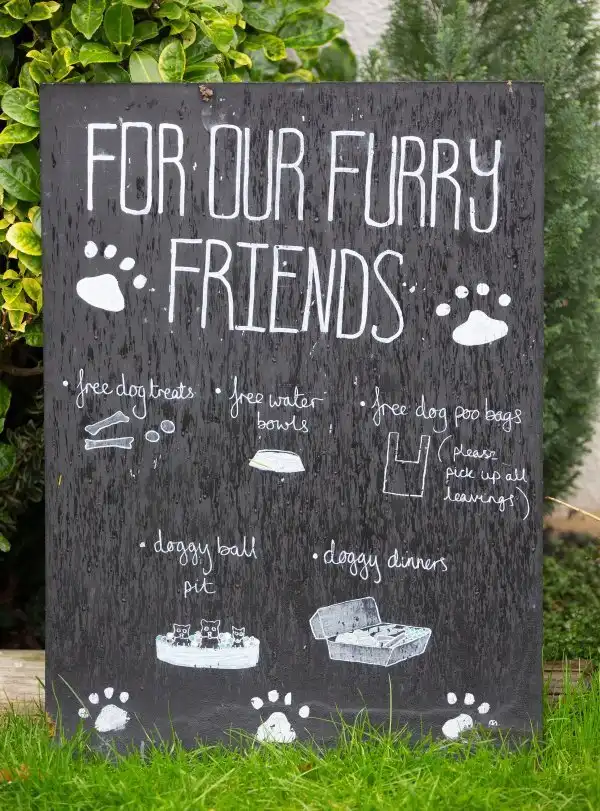 FOR OUR FURRY
FRIENDS
• free dog treats
• free water
bowls
• free dog poo bags
(please
pick up all
leavings)
• doggy ball
pit
• doggy dinners